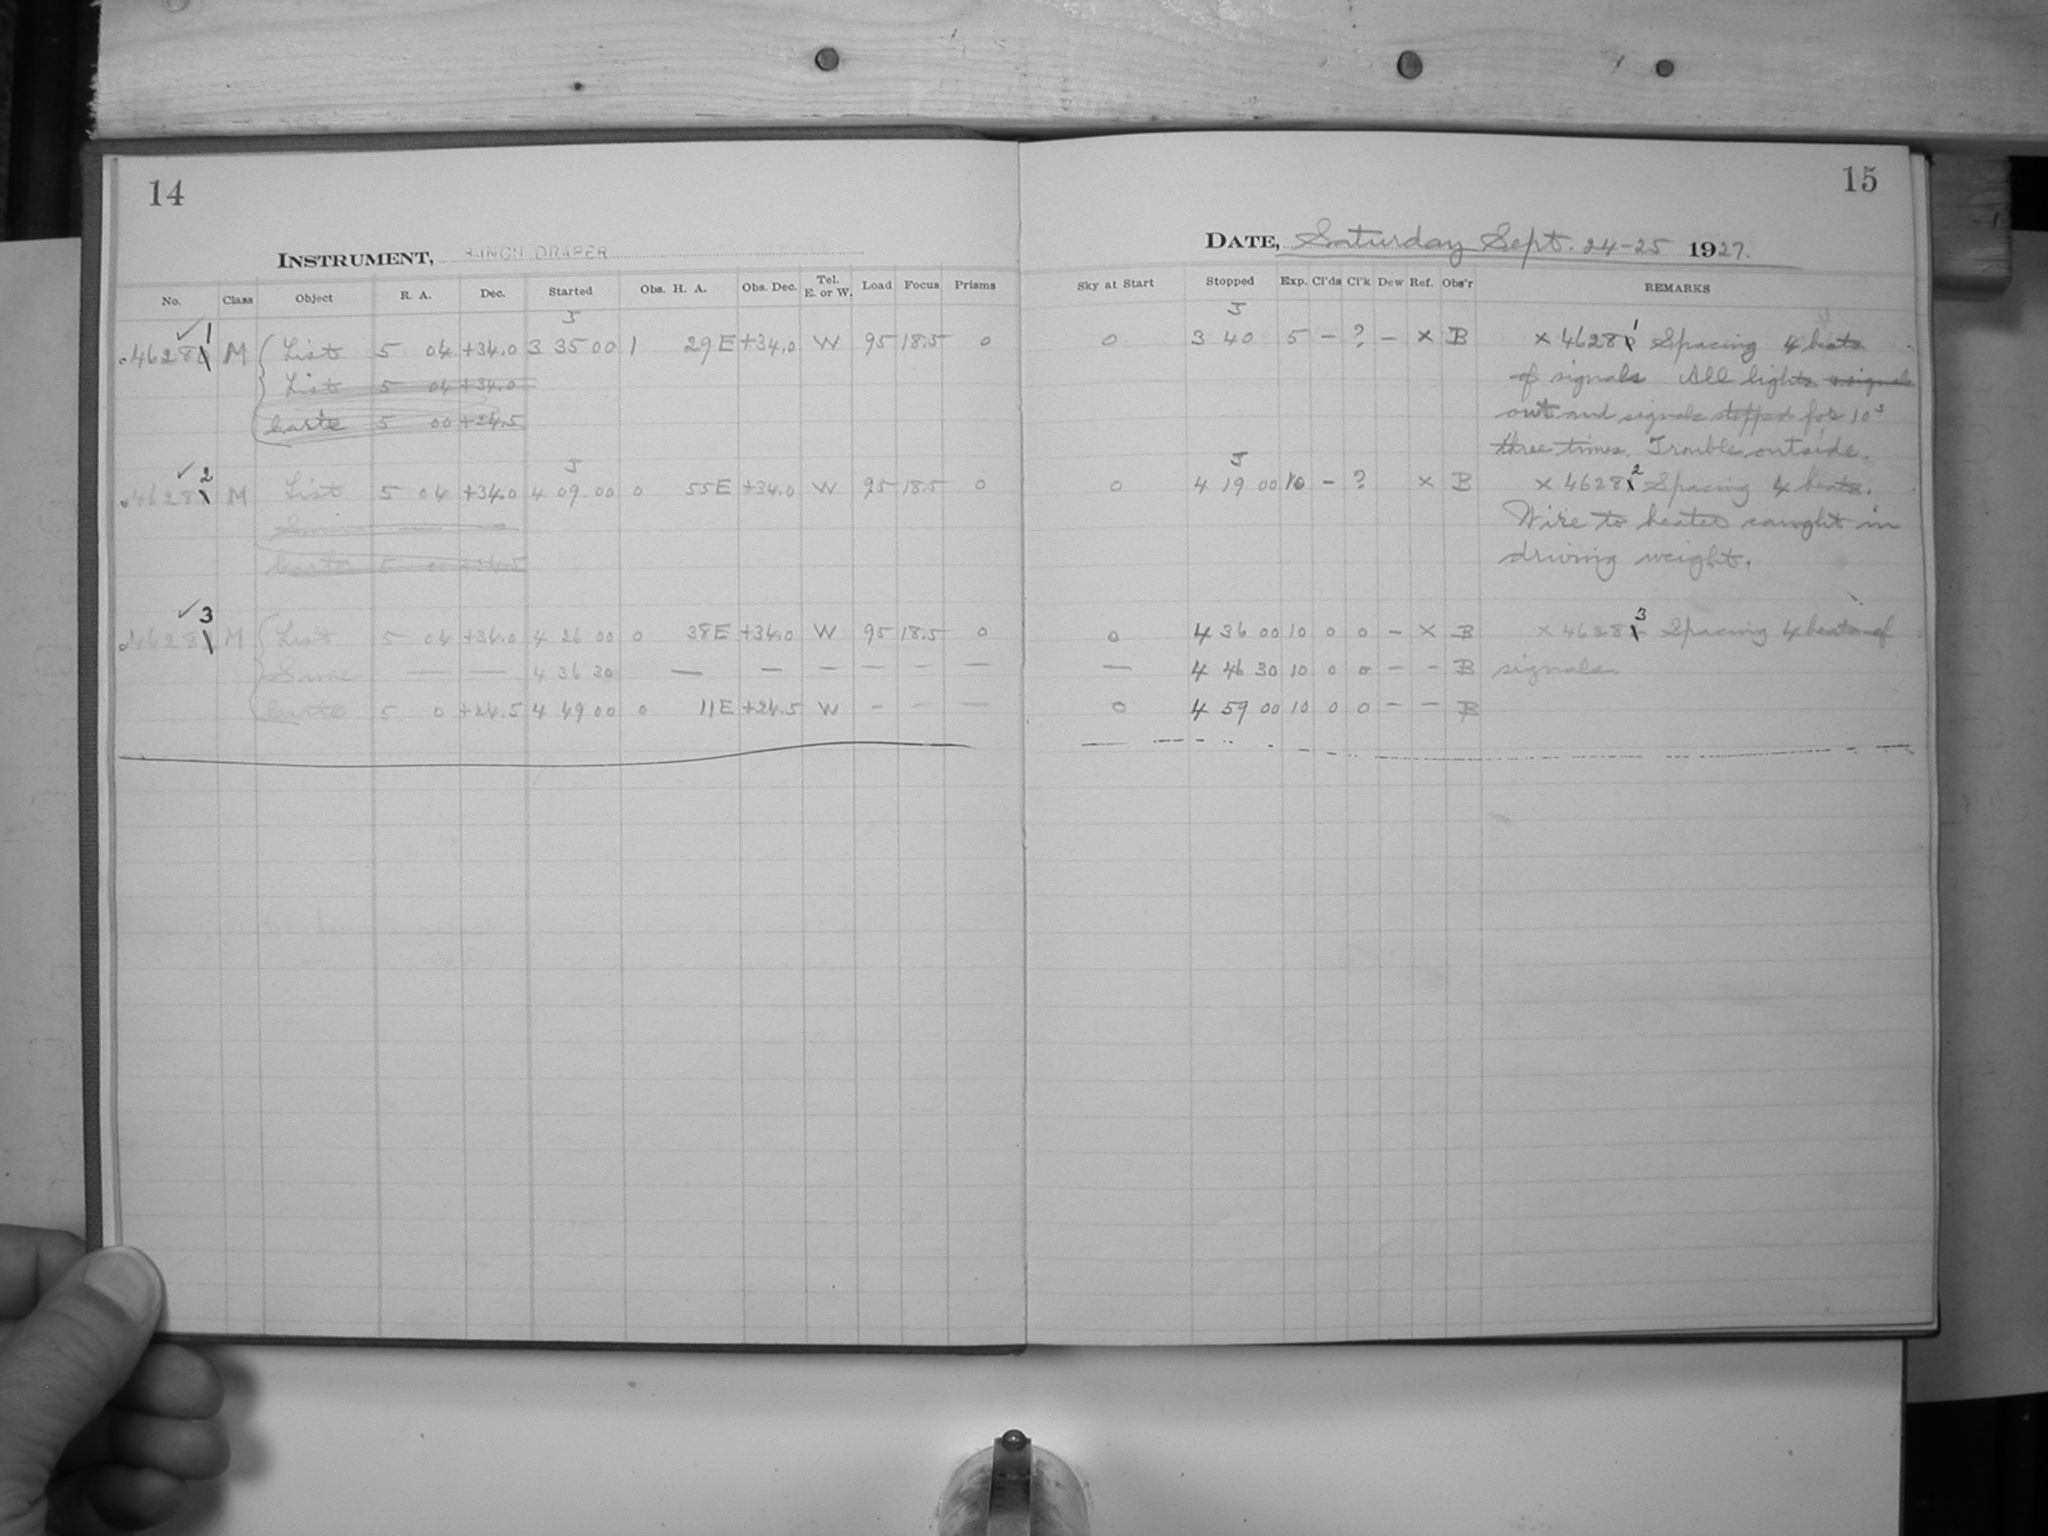 14
INSTRUMENT, 8-INCH DRAPER
No. Class Object R. A. Dec. Started Obs. H. A. Obs. Dec. Tel. E. or W. Load Focus Prisms
✓ 1 5
46281 M List 5 04 +34.0 3 35 00 1 29 E +34.0 W 95 18.5 0
List 5 04 +34.0
Carte 5 00 +24.5
✓ 2 5
46282 M List 5 04 +34.0 4 09 00 0 55 E +34.0 W 95 18.5 0
Same — —
Carte 5 00 +24.5
✓ 3
46283 M List 5 04 +34.0 4 26 00 0 38 E +34.0 W 95 18.5 0
Same — — 4 36 30 — — — — — —
Carte 5 0 +24.5 4 49 00 0 11 E +24.5 W — — —
15
DATE, Saturday Sept. 24-25 1927.
Sky at Start Stopped Exp. Cl'ds Cl'k Dew Ref. Obs'r REMARKS
5
0 3 40 5 – ? – × B × 46281 Spacing 4 beats
of signals All lights
out and signals stopped for 10s
three times. Trouble outside.
5
0 4 19 00 10 – ? × B × 46282 Spacing 4 beats.
Wire to heater caught in
driving weight.
0 4 36 00 10 0 0 – × B × 46283 Spacing 4 beats of
— 4 46 30 10 0 0 – – B signals.
0 4 59 00 10 0 0 – – B